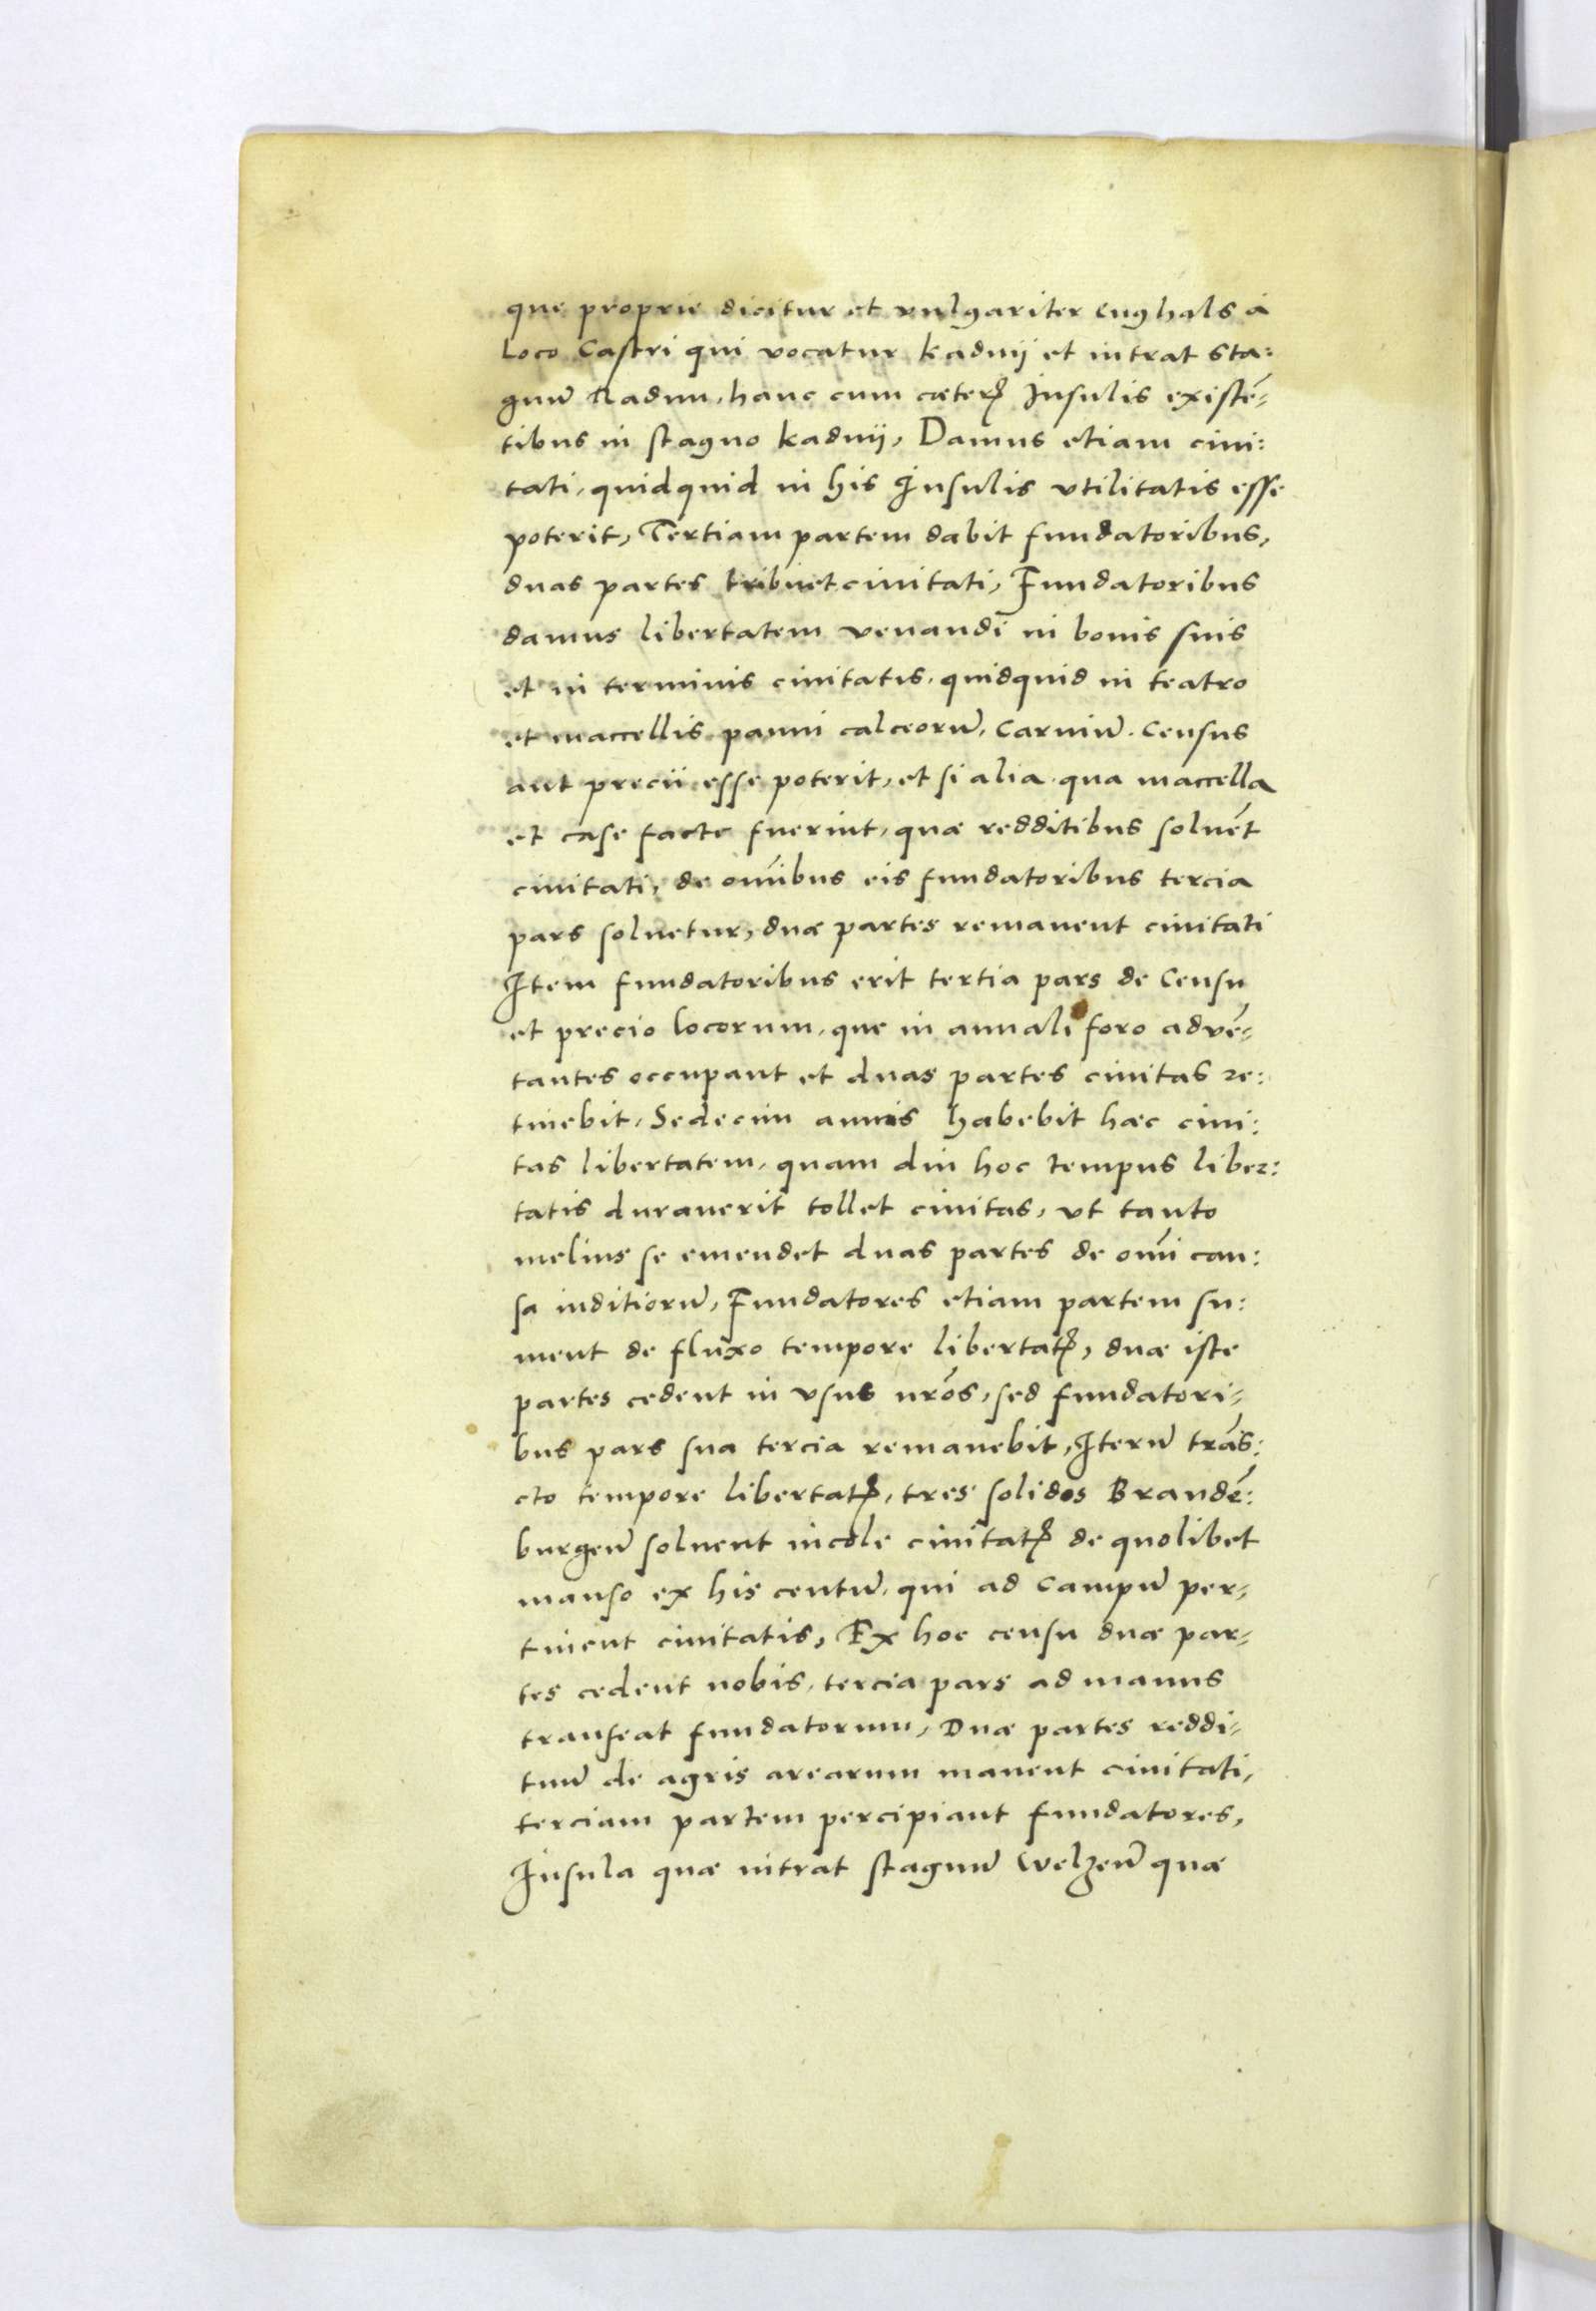 que proprie dicitur et vulgariter Enghals à
Loco Castri qui vocatur kaduij et intrat sta:
gnu̅ Radun, hanc cum cæterꝭ Insulis existe̅-
tibus in stagno kaduij, Damus etiam ciui:
tati, quidquid in his Insulis vtilitatis esse
poterit, Tertiam partem dabit fundatoribus,
duas partes tribuet ciuitati, Fundatoribus
damus libertatem venandi in bonis suis
et in terminis ciuitatis, quidquid in teatro
et maccellis panni calceoru̅, Carniu̅. Census
aut precii esse poterit, et si alia qua maccella
et case facte fuerint, quæ redditibus solue̅t
ciuitati, de om̅ibus eis fundatoribus tercia
pars soluetur, duæ partes remanent ciuitati
Item fundatoribus erit tertia pars de Censu
et precio locorum, que in annali foro adve̅-
tantes occupant et duas partes ciuitas re:
tinebit, Sedecim annis habebit hæc ciui:
tas libertatem, quam diu hoc tempus liber:
tatis durauerit tollet ciuitas, vt tanto
melius se emendet duas partes de om̅i cau:
sa iuditioru̅, Fundatores etiam partem su:
ment de fluxo tempore libertatꝭ, duæ iste
partes cedent in vsus nr̅os, sed fundatori-
bus pars sua tercia remanebit, Iteru̅ tra̅s:
cto tempore libertatꝭ, tres solidos Brande̅:
burgen̅ soluent incole ciuitatꝭ de quolibet
manso ex his centu̅, qui ad Campu̅ per-
tinent ciuitatis, Ex hoc censu duæ par-
tes cedent nobis, tercia pars ad manus
transeat fundatorum, Duæ partes reddi-
tuu̅ de agris arearum manent ciuitati,
terciam partem percipiant fundatores,
Insula quæ intrat stagnu̅ Welzen̅ quæ